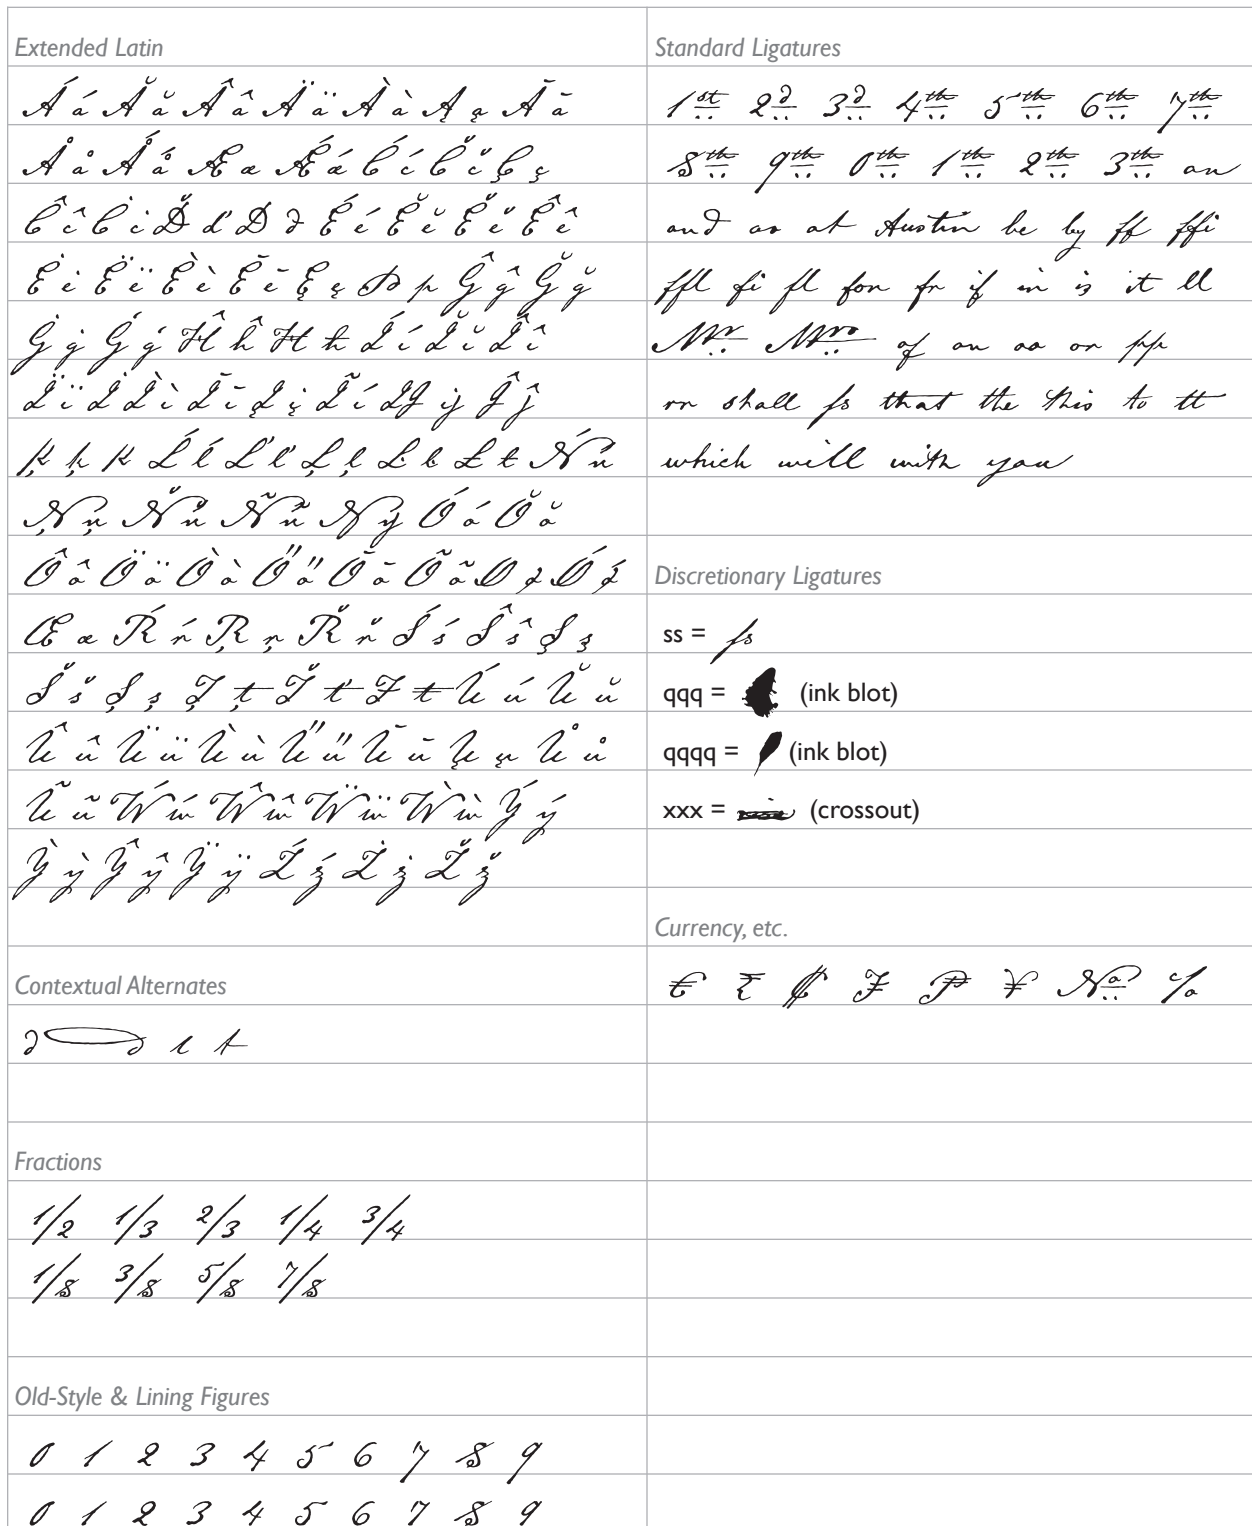 Extended Latin
Á á Ă ă Â â Ä ä À à Ą ą Ā ā
Å å Ǻ ǻ Æ æ Ǽ ǽ Ć ć Č č Ç ç
Ĉ ĉ Ċ ċ Ď ď Đ đ É é Ĕ ĕ Ě ě Ê ê
Ė ė Ë ë È è Ē ē Ę ę Þ þ Ĝ ĝ Ğ ğ
Ġ ġ Ĥ ĥ Ħ ħ Í í Ĭ ĭ Î î
Ï ï İ Ì ì Ī ī Į į Ĩ IJ ij Ĵ ĵ
Ķ ķ ĸ Ĺ ĺ Ľ ľ Ļ ļ Ŀ ŀ Ł ł Ń ń
Ņ ņ Ň ň Ñ ñ Ŋ ŋ Ó ó Ŏ ŏ
Ô ô Ö ö Ò ò Ő ő Ō ō Õ õ Ø ø Ǿ ǿ
Œ œ Ŕ ŕ Ŗ ŗ Ř ř Ś ś Ŝ ŝ Ş ş
Š š Ș ș Ţ ţ Ť ť Ŧ ŧ Ú ú Ŭ ŭ
Û û Ü ü Ù ù Ű ű Ū ū Ų ų Ů ů
Ũ ũ Ẃ ẃ Ŵ ŵ Ẅ ẅ Ẁ ẁ Ý ý
Ỳ ỳ Ŷ ŷ Ÿ ÿ Ź ź Ż ż Ž ž
Contextual Alternates
d d t
Fractions
1/2 1/3 2/3 1/4 3/4
1/8 3/8 5/8 7/8
Old-Style & Lining Figures
0 1 2 3 4 5 6 7 8 9
0 1 2 3 4 5 6 7 8 9
Standard Ligatures
1st 2d 3d 4th 5th 6th 7th
8th 9th 0th 1th 2th 3th an
and as at Austin be by ff ffi
ffl fi fl for fr if in is it ll
Mr Mrs of on oo or pp
rr shall ss that the this to tt
which will with you
Discretionary Ligatures
ss = ſs
qqq = (ink blot)
qqqq = (ink blot)
xxx = (crossout)
Currency, etc.
€ ₹ ₵ ₣ ₱ ¥ № %